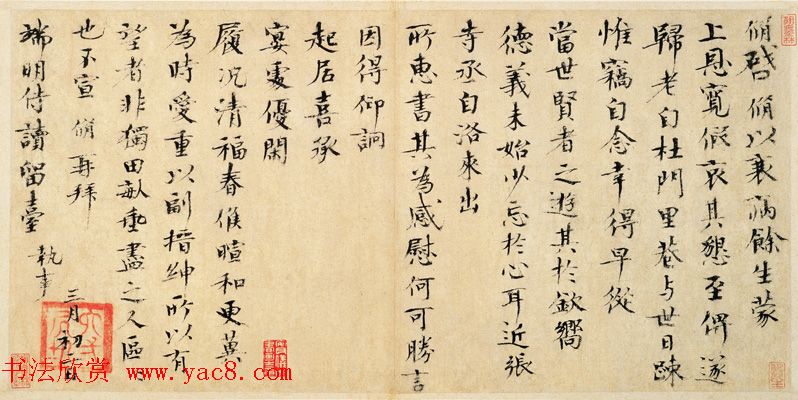 脩啓脩以衰病餘生蒙
上恩寬假哀其懇至俾遂
歸老自杜門里巷与世日疎
惟竊自念幸得早從
當世賢者之遊其於欽嚮
德義未始少忘於心耳近張
寺丞自洛來出
所惠書其為感慰何可勝言
因得仰詢
起居喜承
宴處優閑
履况清福春候暄和更冀
為時愛重以副搢紳所以有
望者非獨田畝垂盡之人區〻
也不宣 脩再拜
端明侍讀留臺 執事 三月初二日
书法欣赏 www.yac8.com